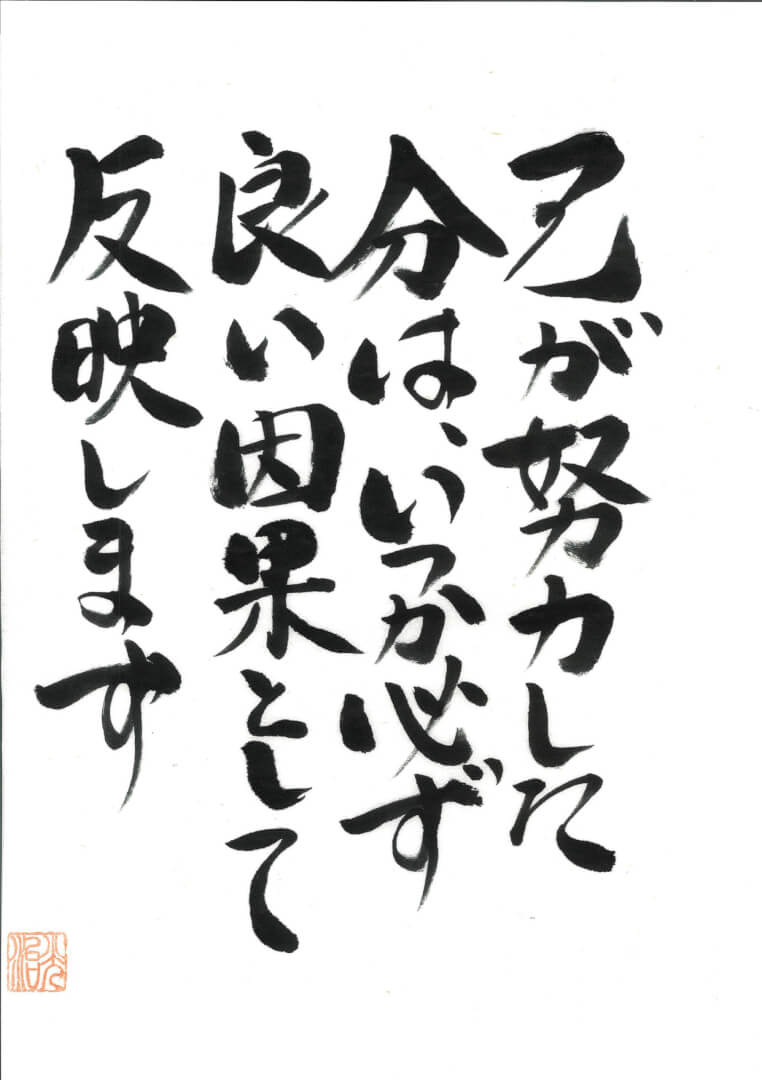 己が努力した
分は、いつか必ず
良い因果として
反映します